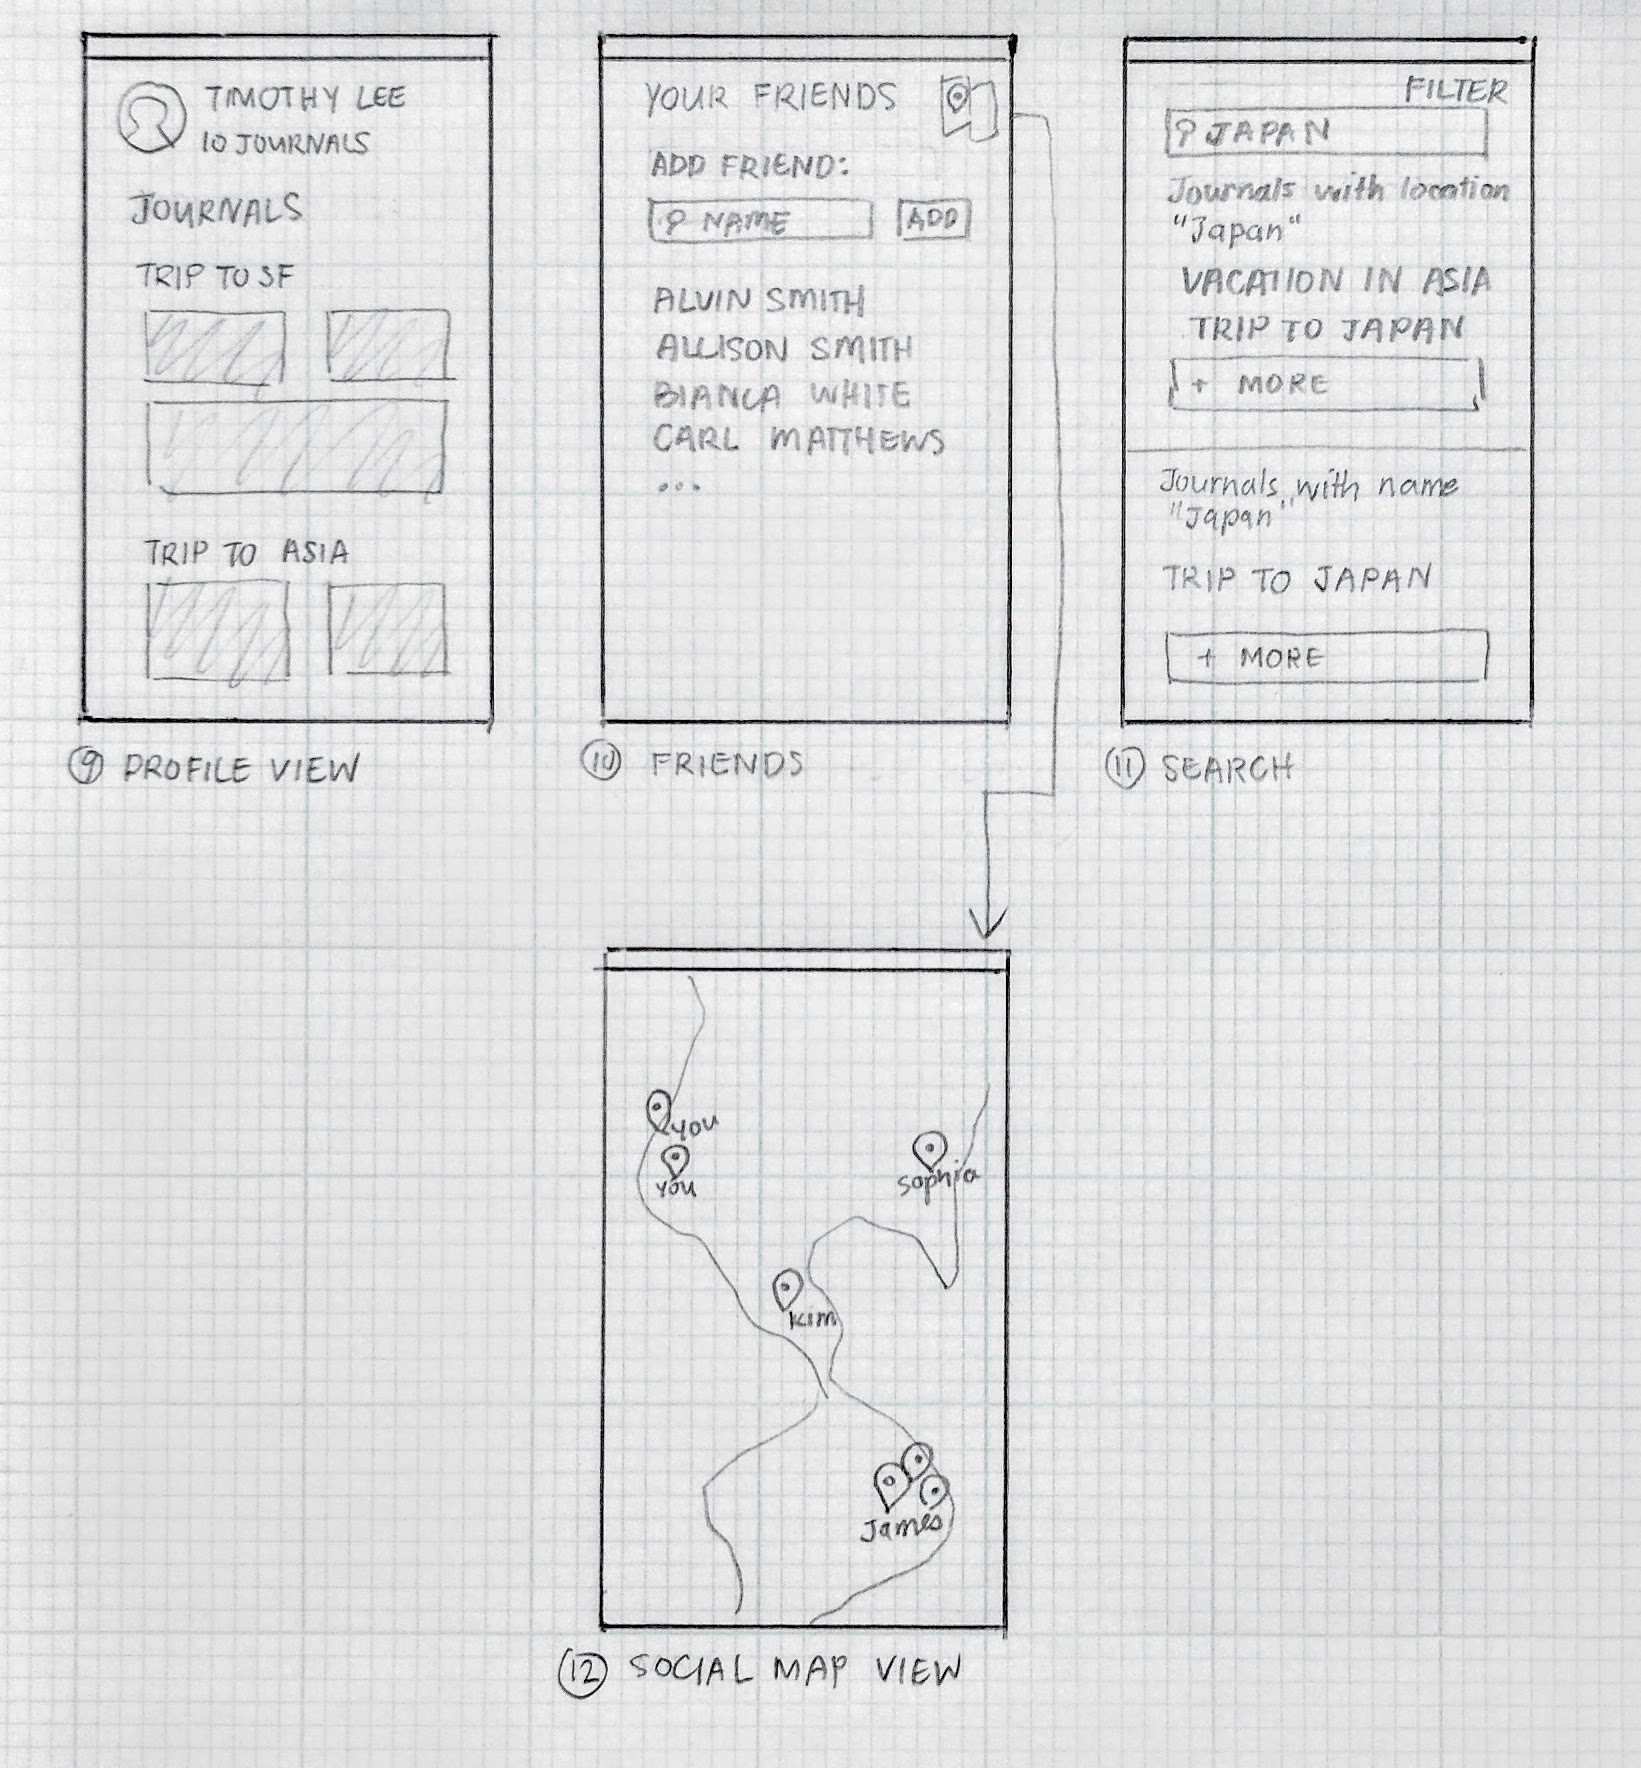 TIMOTHY LEE
10 JOURNALS
JOURNALS
TRIP TO SF
TRIP TO ASIA
9 PROFILE VIEW
YOUR FRIENDS
ADD FRIEND:
NAME
ADD
ALVIN SMITH
ALLISON SMITH
BIANCA WHITE
CARL MATTHEWS
...
10 FRIENDS
FILTER
JAPAN
Journals with location
"Japan"
VACATION IN ASIA
TRIP TO JAPAN
+ MORE
Journals with name
"Japan"
TRIP TO JAPAN
+ MORE
11 SEARCH
you
you
Sophia
Kim
James
12 SOCIAL MAP VIEW